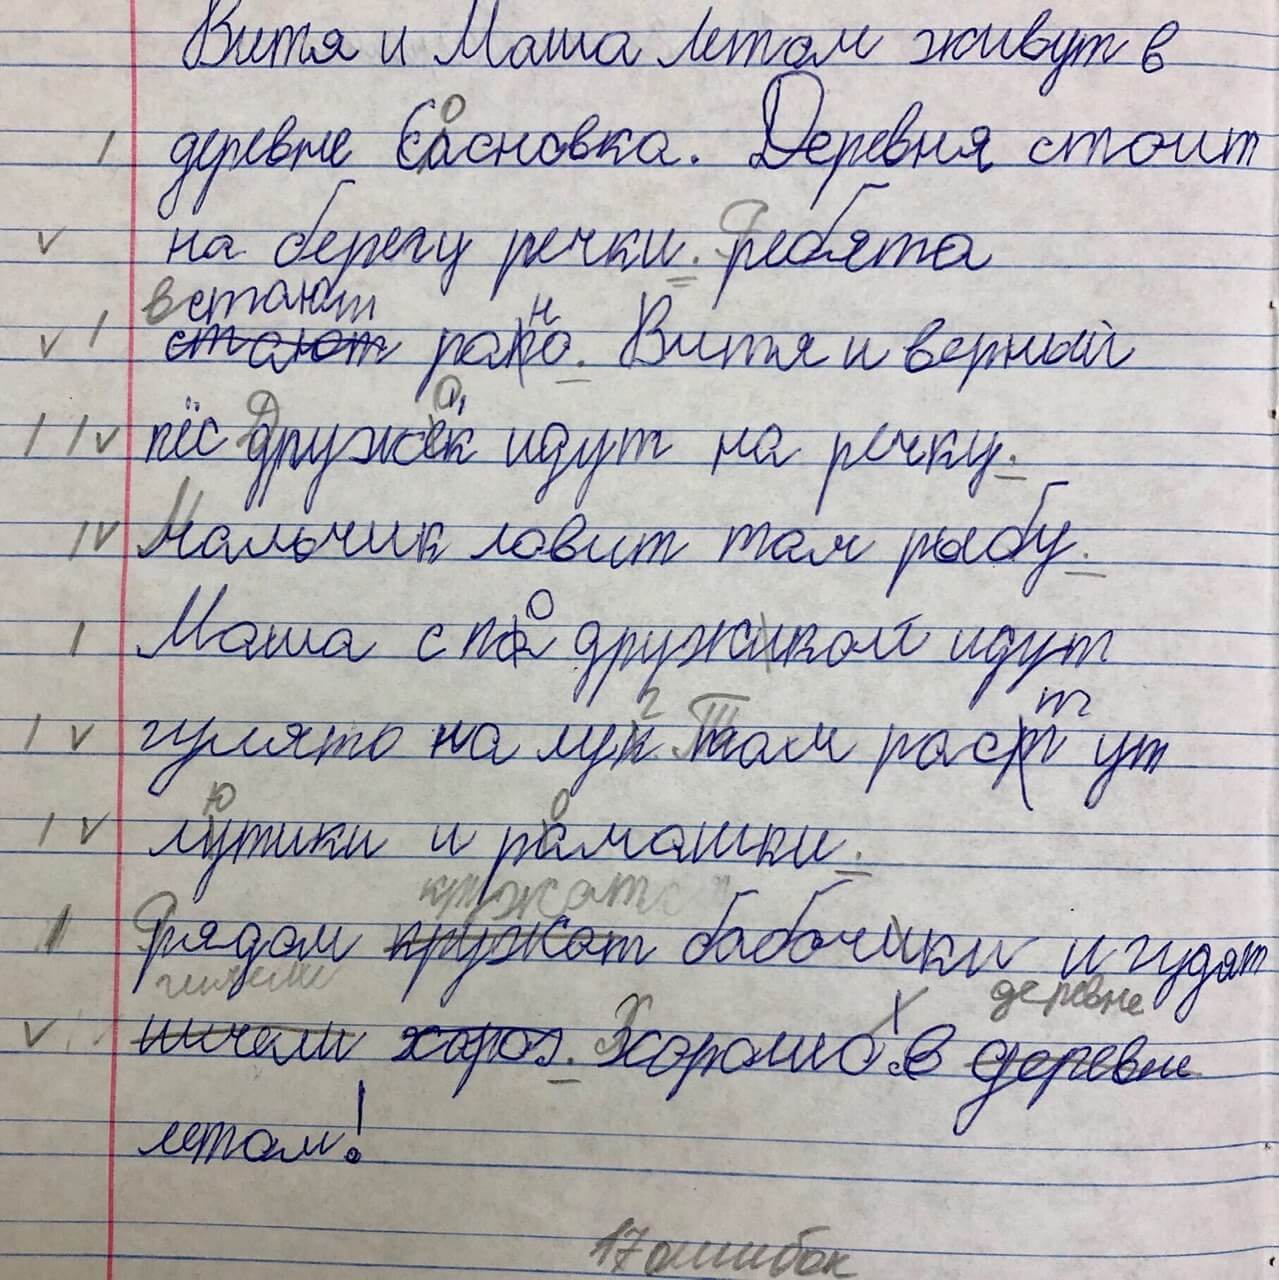 Витя и Маша летом живут в
деревне Сосновка. Деревня стоит
на берегу речки. Ребята
встают
стают рано. Витя и верный
пёс Дружок идут на речку.
Мальчик ловит там рыбу.
Маша с по дружкой идут
гулято на луг Там раст ут
лютики и ромашки.
кружатся
Рядом кружат бабочки и гудят
деревне
хороз. Хорошо в деревне
летом!
17 ошибок